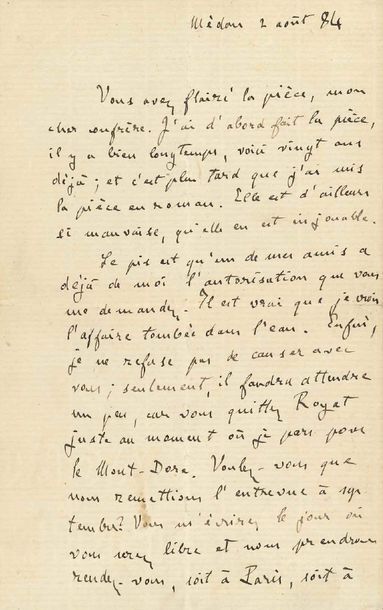 Médan 2 août 84
Vous avez flairé la pièce, mon
cher confrère. J'ai d'abord fait la pièce,
il y a bien longtemps, voici vingt ans
déjà ; et c'est plus tard que j'ai mis
la pièce en roman. Elle est d'ailleurs
si mauvaise, qu'elle en est injouable.
Le pis est qu'un de mes amis a
déjà de moi l'autorisation que vous
me demandez. Il est vrai que je crois
l'affaire tombée dans l'eau. Enfin,
je ne refuse pas de causer avec
vous ; seulement, il faudra attendre
un peu, car vous quittez Royat
juste au moment où je pars pour
le Mont-Dore. Voulez-vous que
nous remettions l'entrevue à sep
tembre? Vous m'écrirez le jour où
vous serez libre et nous prendrons
rendez-vous, soit à Paris, soit à